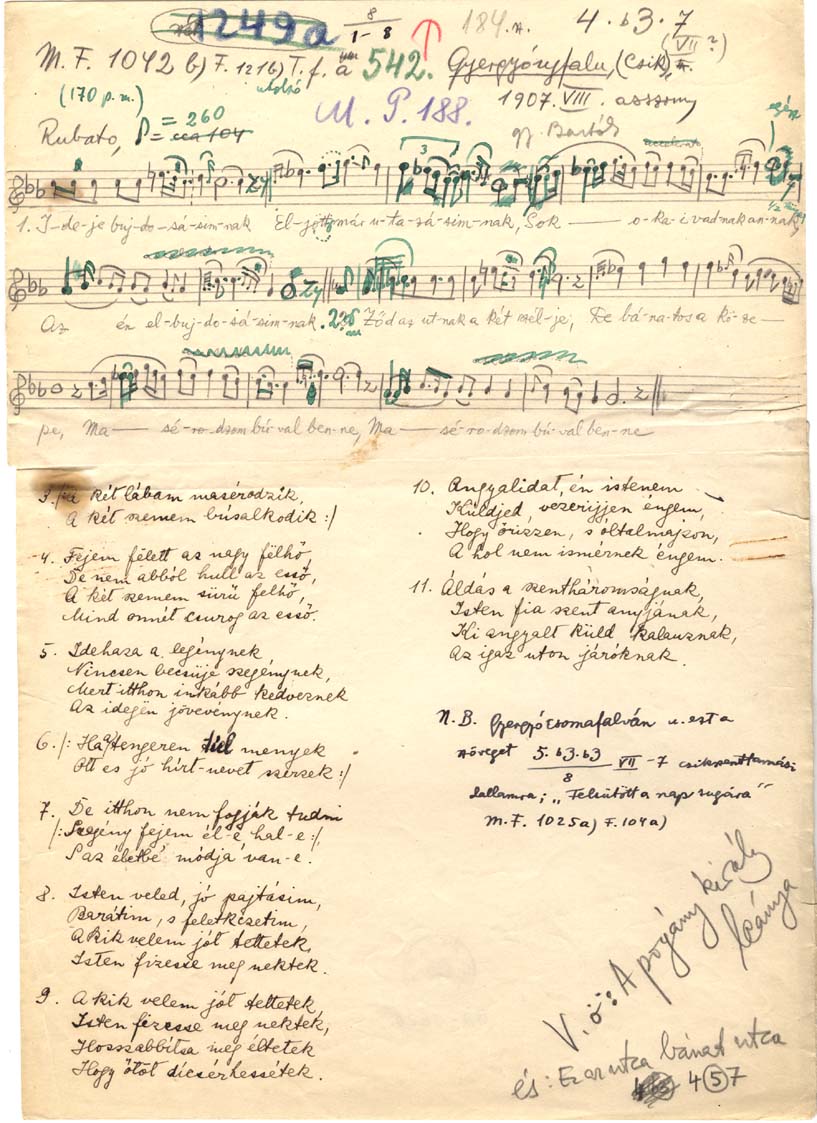 1249a
8
1-8
184.
4. b3. 7
(VII?)
M. F. 1042 b) F. 121b) T. f. a 542. Gyergyóujfalu, (Csik),
(170 p.m.) utolsó
M. P. 188.
1907. VIII. asszony
Rubato, = 260
gy. Bartók
egész
1. I-de-je buj-do-sá-sim-nak El-jött már u-ta-zá-sim-nak, Sok — o-ka-i vadnak an-nak,
Az én el-buj-do-sá-sim-nak. 2. Ződ az ut-nak a két szél-je, De bá-na-tos a kö-ze-
pe, Ma— sé-ro-dzom bú-val ben-ne, Ma— sé-ro-dzom bú-val ben-ne
3. /:A két lábam masérodzik,
A két szemem búsalkodik :/
4. Fejem felett az nagy fëlhő,
De nem abból hull az esső,
A két szemem sürü felhő,
Mind onnét csurog az esső.
5. Idehaza a legénynek
Nincsen becsüje szegénynek,
Mert itthon inkább kedveznek
Az idegën jövevénynek.
6. /: Ha tengeren tul menyek
Ott es jó hirt-nevet szerzek :/
7. De itthon nem fogják tudni
/: Szegény fejem él-e hal-e :/,
S az életbe módja van-e.
8. Isten veled, jó pajtásim,
Barátim, s feletkezetim,
A kik velem jót tettetek,
Isten fizesse meg nektek.
9. A kik velem jót tettetek,
Isten fizesse meg nektek,
Hosszabbitsa még éltetek
Hogy őtöt dicsérhessétek.
10. Angyalidat, én istenem
Küldjed vezerijjen éngem,
Hogy őrizzen, s óltalmazzon,
A hol nem ismérnek éngem.
11. Áldás a szentháromságnak,
Isten fia szent anyjának,
Ki angyalt küld kalauznak,
Az igaz uton járóknak.
N. B. Gyergyócsomafalván u. ezt a
szöveget 5. b3. b3 VII -7 csikszenttamási
8
dallamra; "Felsütött a nap sugára"
M. F. 1025a) F. 104a)
V. ö: A pogány király
leánya
és: Ez az utca bánat utca
4 5 7